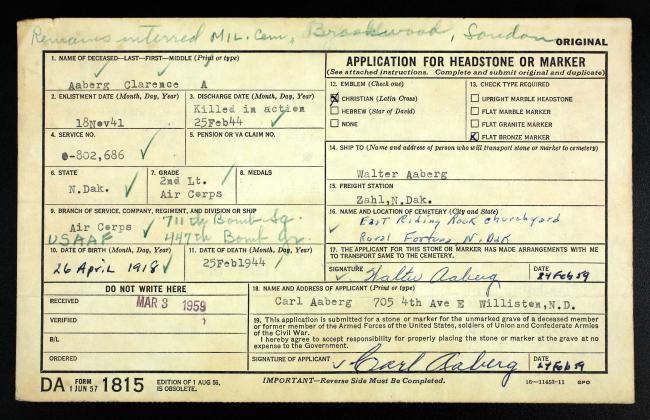 Remains interred MIL. Cem, Brookwood, London
ORIGINAL
1. NAME OF DECEASED—LAST—FIRST—MIDDLE (Print or type)
Aaberg Clarence A
2. ENLISTMENT DATE (Month, Day, Year)
18Nov41
3. DISCHARGE DATE (Month, Day, Year)
Killed in action
25Feb44
4. SERVICE NO.
O-802,686
5. PENSION OR VA CLAIM NO.
6. STATE
N.Dak.
7. GRADE
2nd Lt.
Air Corps
8. MEDALS
9. BRANCH OF SERVICE, COMPANY, REGIMENT, AND DIVISION OR SHIP
Air Corps 711th Bomb Sq.
USAAF 447th Bomb Gr.
10. DATE OF BIRTH (Month, Day, Year)
26 April 1918
11. DATE OF DEATH (Month, Day, Year)
25Feb1944
DO NOT WRITE HERE
RECEIVED MAR 3 1959
VERIFIED
B/L
ORDERED
APPLICATION FOR HEADSTONE OR MARKER
(See attached instructions. Complete and submit original and duplicate)
12. EMBLEM (Check one)
X CHRISTIAN (Latin Cross)
HEBREW (Star of David)
NONE
13. CHECK TYPE REQUIRED
UPRIGHT MARBLE HEADSTONE
FLAT MARBLE MARKER
FLAT GRANITE MARKER
X FLAT BRONZE MARKER
14. SHIP TO (Name and address of person who will transport stone or marker to cemetery)
Walter Aaberg
15. FREIGHT STATION
Zahl,N.Dak.
16. NAME AND LOCATION OF CEMETERY (City and State)
East Riding Rock Churchyard
Rural Fortuna, N.Dak
17. THE APPLICANT FOR THIS STONE OR MARKER HAS MADE ARRANGEMENTS WITH ME TO TRANSPORT SAME TO THE CEMETERY.
SIGNATURE Walter Aaberg DATE 24 Feb 59
18. NAME AND ADDRESS OF APPLICANT (Print or type)
Carl Aaberg 705 4th Ave E Williston,N.D.
19. This application is submitted for a stone or marker for the unmarked grave of a deceased member
or former member of the Armed Forces of the United States, soldiers of Union and Confederate Armies
of the Civil War.
I hereby agree to accept responsibility for properly placing the stone or marker at the grave at no
expense to the Government.
SIGNATURE OF APPLICANT Carl Aaberg DATE 24 Feb 59
DA FORM 1 JUN 57 1815 EDITION OF 1 AUG 56, IS OBSOLETE.
IMPORTANT—Reverse Side Must Be Completed.
16—11453-11 GPO